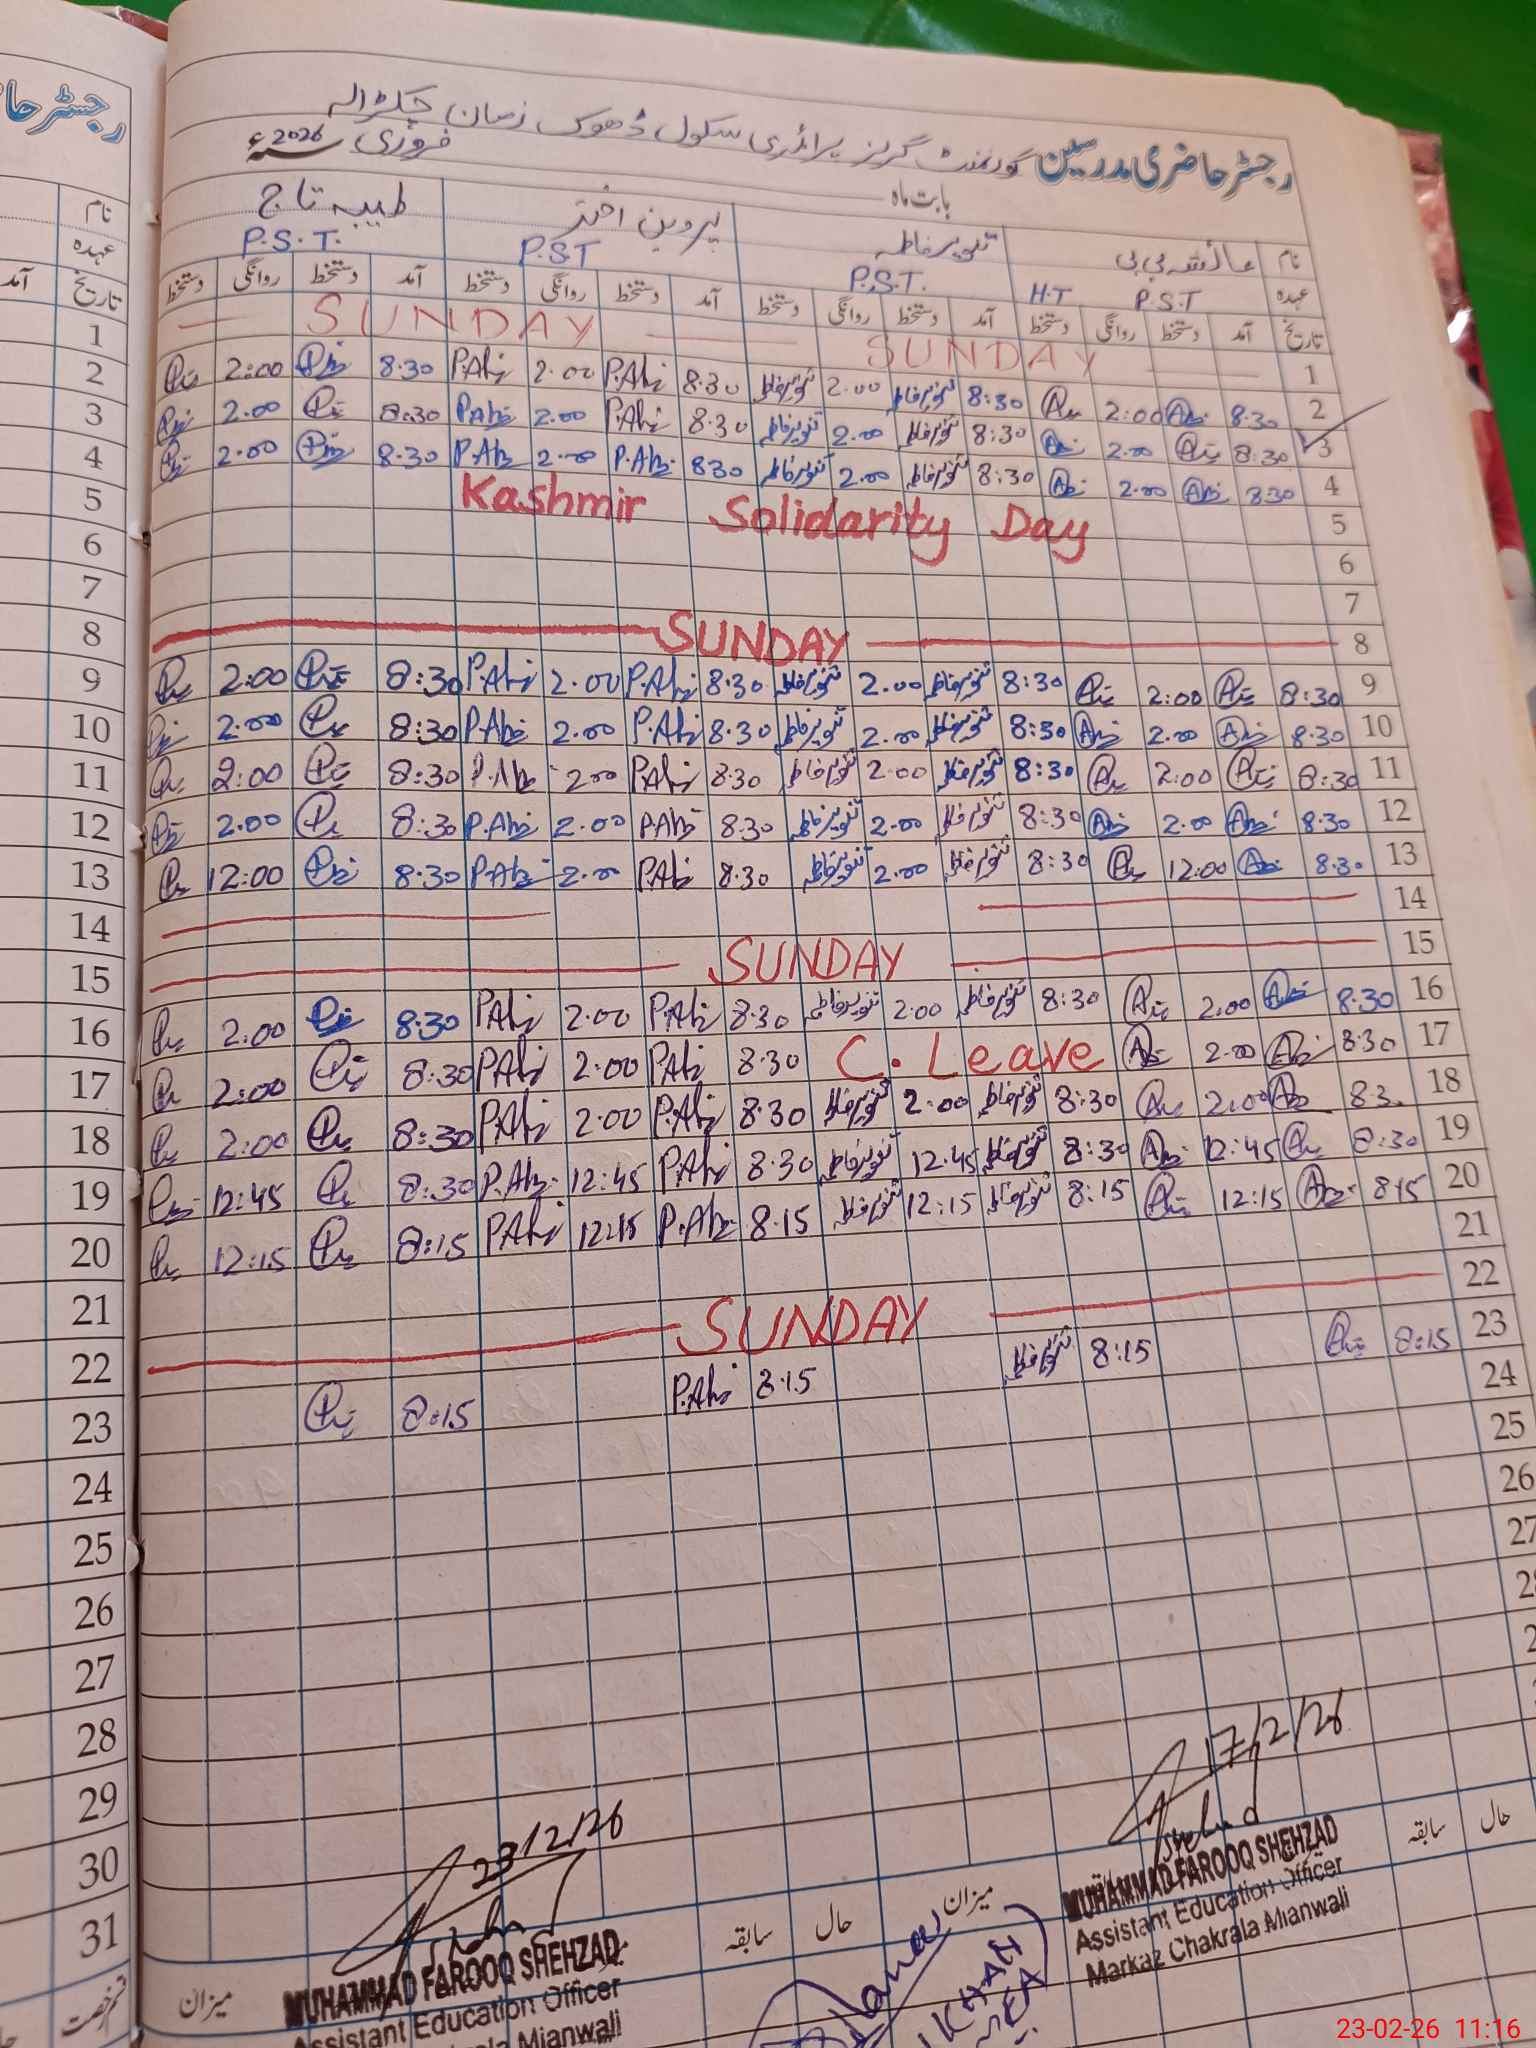 رجسٹر حاضری مدرسین گورنمنٹ گرلز پرائمری سکول ڈھوک زمان چکڑالہ
بابت ماہ فروری سنہ 2026ء
نام عائشہ بی بی تنویر فاطمہ پروین اختر طیبہ تاج
عہدہ P.S.T H.T P.S.T. P.S.T P.S.T.
تاریخ آمد دستخط روانگی دستخط آمد دستخط روانگی دستخط آمد دستخط روانگی دستخط آمد دستخط روانگی دستخط
1 SUNDAY SUNDAY 1
2 2:00 8:30 P.Ahz 2.00 P.Ahz 8.30 تنویر فاطمہ 2.00 تنویر فاطمہ 8:30 2:00 8.30 2
3 2.00 8:30 P.Ahz 2.00 P.Ahz 8.30 تنویر فاطمہ 2.00 تنویر فاطمہ 8:30 2.00 8.30 3
4 2.00 8.30 P.Ahz 2.00 P.Ahz 830 تنویر فاطمہ 2.00 تنویر فاطمہ 8:30 2.00 830 4
5 Kashmir Solidarity Day 5
6 6
7 7
8 SUNDAY 8
9 2:00 8:30 P.Ahz 2.00 P.Ahz 8.30 تنویر فاطمہ 2.00 تنویر فاطمہ 8:30 2:00 8:30 9
10 2.00 8:30 P.Ahz 2.00 P.Ahz 8.30 تنویر فاطمہ 2.00 تنویر فاطمہ 8:30 2.00 8.30 10
11 2:00 8:30 P.Ahz 2.00 P.Ahz 8.30 تنویر فاطمہ 2.00 تنویر فاطمہ 8:30 2:00 8:30 11
12 2.00 8:30 P.Ahz 2.00 P.Ahz 8.30 تنویر فاطمہ 2.00 تنویر فاطمہ 8:30 2.00 8.30 12
13 12:00 8.30 P.Ahz 2.00 P.Ahz 8.30 تنویر فاطمہ 2.00 تنویر فاطمہ 8:30 12:00 8.30 13
14 14
15 SUNDAY 15
16 2.00 8:30 P.Ahz 2.00 P.Ahz 8.30 تنویر فاطمہ 2.00 تنویر فاطمہ 8:30 2.00 8.30 16
17 2:00 8:30 P.Ahz 2.00 P.Ahz 8.30 C. Leave 2.00 8.30 17
18 2:00 8:30 P.Ahz 2.00 P.Ahz 8.30 تنویر فاطمہ 2.00 تنویر فاطمہ 8:30 2.00 83 18
19 12:45 8:30 P.Ahz 12:45 P.Ahz 8.30 تنویر فاطمہ 12.45 تنویر فاطمہ 8:30 12:45 8:30 19
20 12:15 8:15 P.Ahz 12:15 P.Ahz 8.15 تنویر فاطمہ 12:15 تنویر فاطمہ 8:15 12:15 815 20
21 21
22 SUNDAY 22
23 8:15 P.Ahz 8.15 تنویر فاطمہ 8:15 8:15 23
24 24
25 25
26 26
27 27
28
29
30
31
17/2/26
MUHAMMAD FAROOQ SHEHZAD
Assistant Education Officer
Markaz Chakrala Mianwali
23/2/26
MUHAMMAD FAROOQ SHEHZAD
Assistant Education Officer
Mianwali
KHAN
حال سابقہ میزان حال سابقہ میزان
قسم رخصت
رجسٹر
نام
عہدہ
تاریخ
آمد
23-02-26 11:16